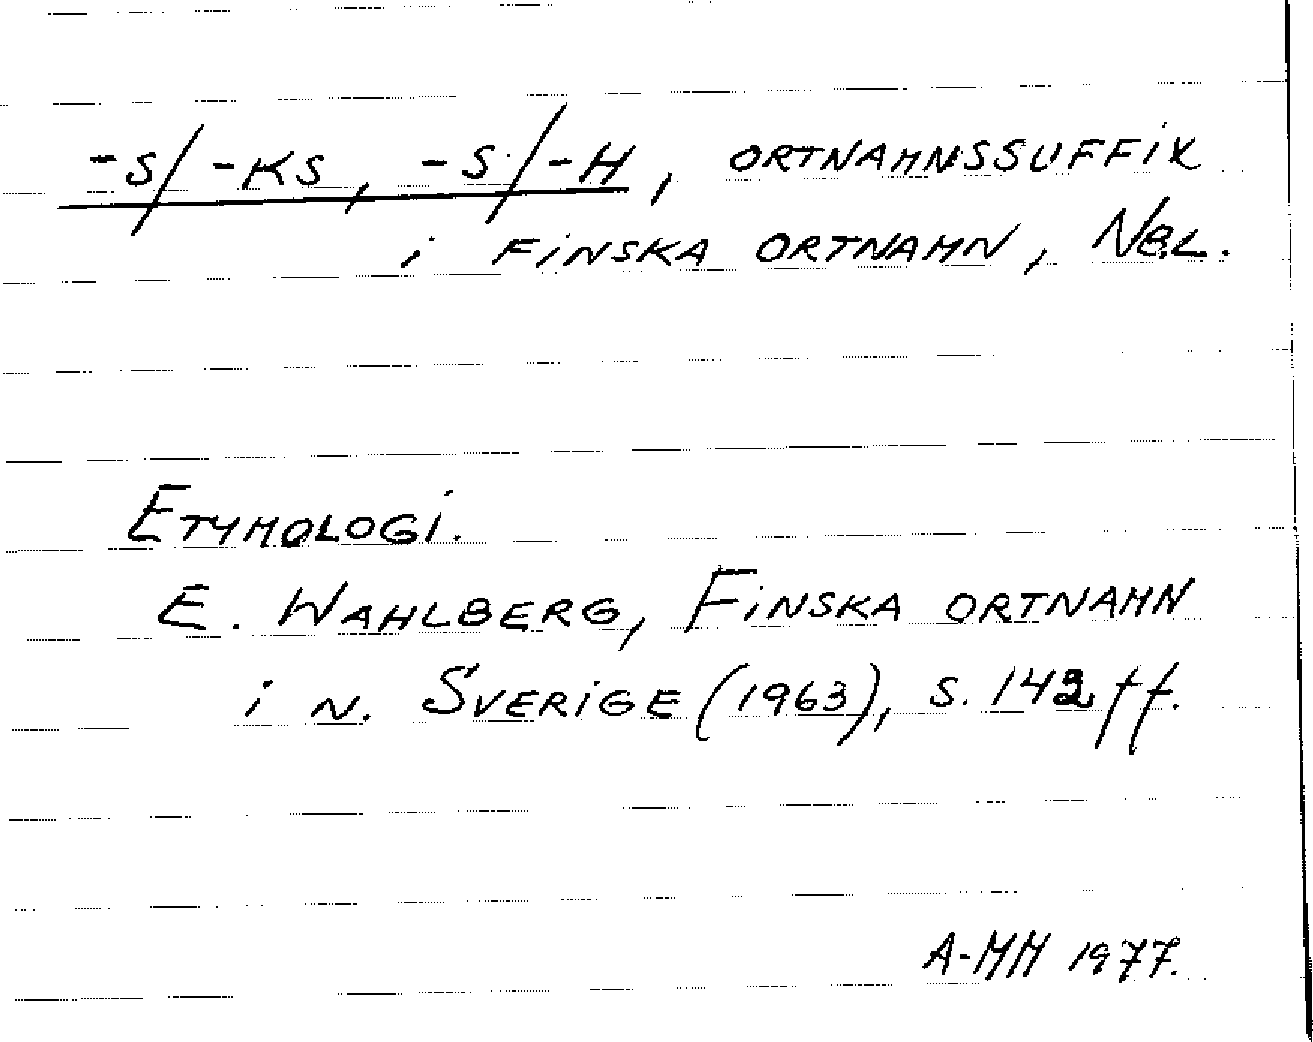 -S/-KS, -S/-H, ORTNAMNSSUFFIX
i FINSKA ORTNAMN, NBL.
ETYMOLOGI.
E. WAHLBERG, FINSKA ORTNAMN
i N. SVERIGE (1963), S. 142 ff.
A-MM 1977.